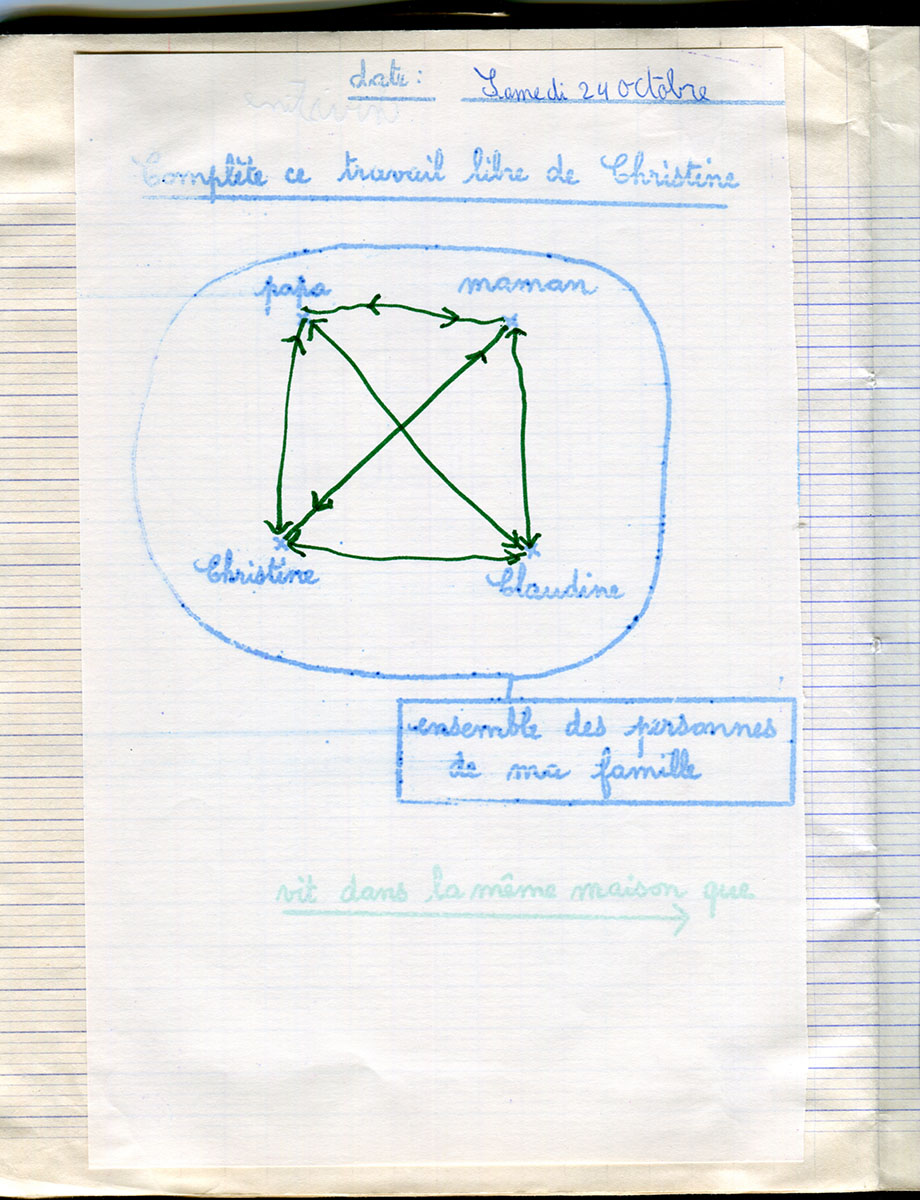 date : Samedi 24 Octobre
Complète ce travail libre de Christine
papa maman
Christine Claudine
ensemble des personnes
de ma famille
vit dans la même maison que